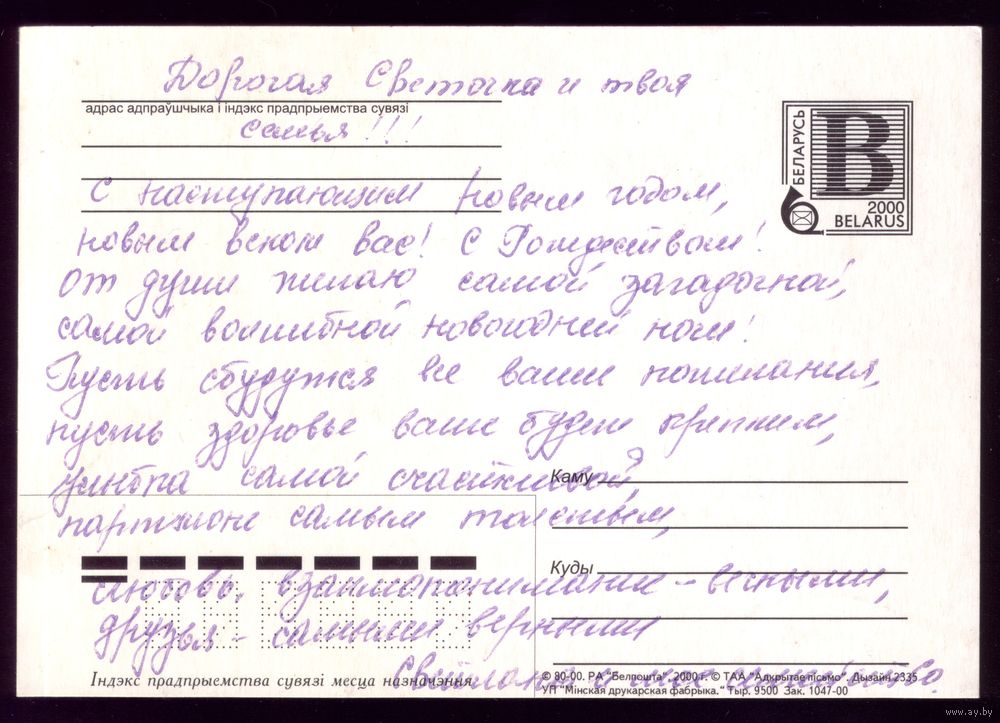 Дорогая Светочка и твоя
адрас адпраўшчыка і індэкс прадпрыемства сувязі
семья!!!
БЕЛАРУСЬ
B
2000
BELARUS
С наступающим Новым годом,
новым веком вас! С Рождеством!
От души желаю самой загадочной,
самой волшебной новогодней ночи!
Пусть сбудутся все ваши пожелания,
пусть здоровье ваше будет крепким,
улыбка самой счастливой,
Каму
партмоне самым толстым,
Куды
любовь, взаимопонимание - вечными,
друзья - самыми верными
Светлана
Індэкс прадпрыемства сувязі месца назначэння
© 80-00. РА "Белпошта". 2000 г. © ТАА "Адкрытае пісьмо". Дызайн 2335.
УП "Мінская друкарская фабрыка." Тыр. 9500 Зак. 1047-00
www.ay.by